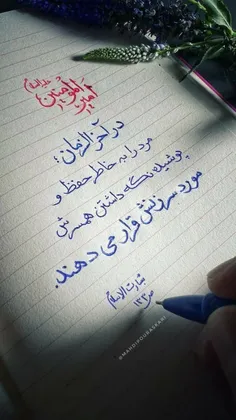 امیرالمؤمنین علیه السلام
در آخرالزمان؛
مرد را به خاطر حفظ و
پوشیده نگه داشتن همسرش
مورد سرزنش قرار می دهند.
بشارت الاسلام
ص۱۳۳
@MAHDIPOURASKARI